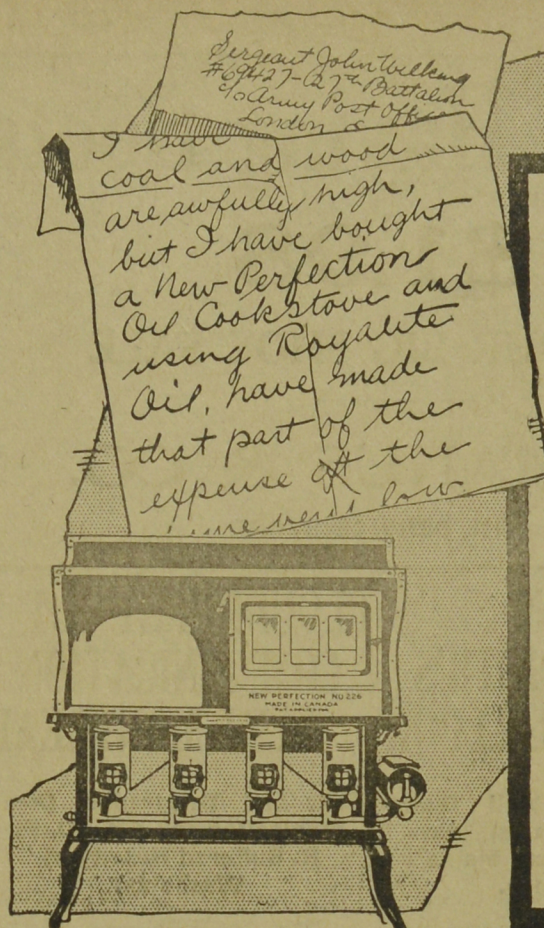 Sergeant John Wilkins
#69427-27th Battalion
c/o Army Post Office
London
I have
coal and wood
are awfully high,
but I have bought
a New Perfection
Oil Cookstove and
using Royalite
Oil, have made
that part of the
expense of the
low
NEW PERFECTION NO 226
MADE IN CANADA
PAT. APPLIED FOR